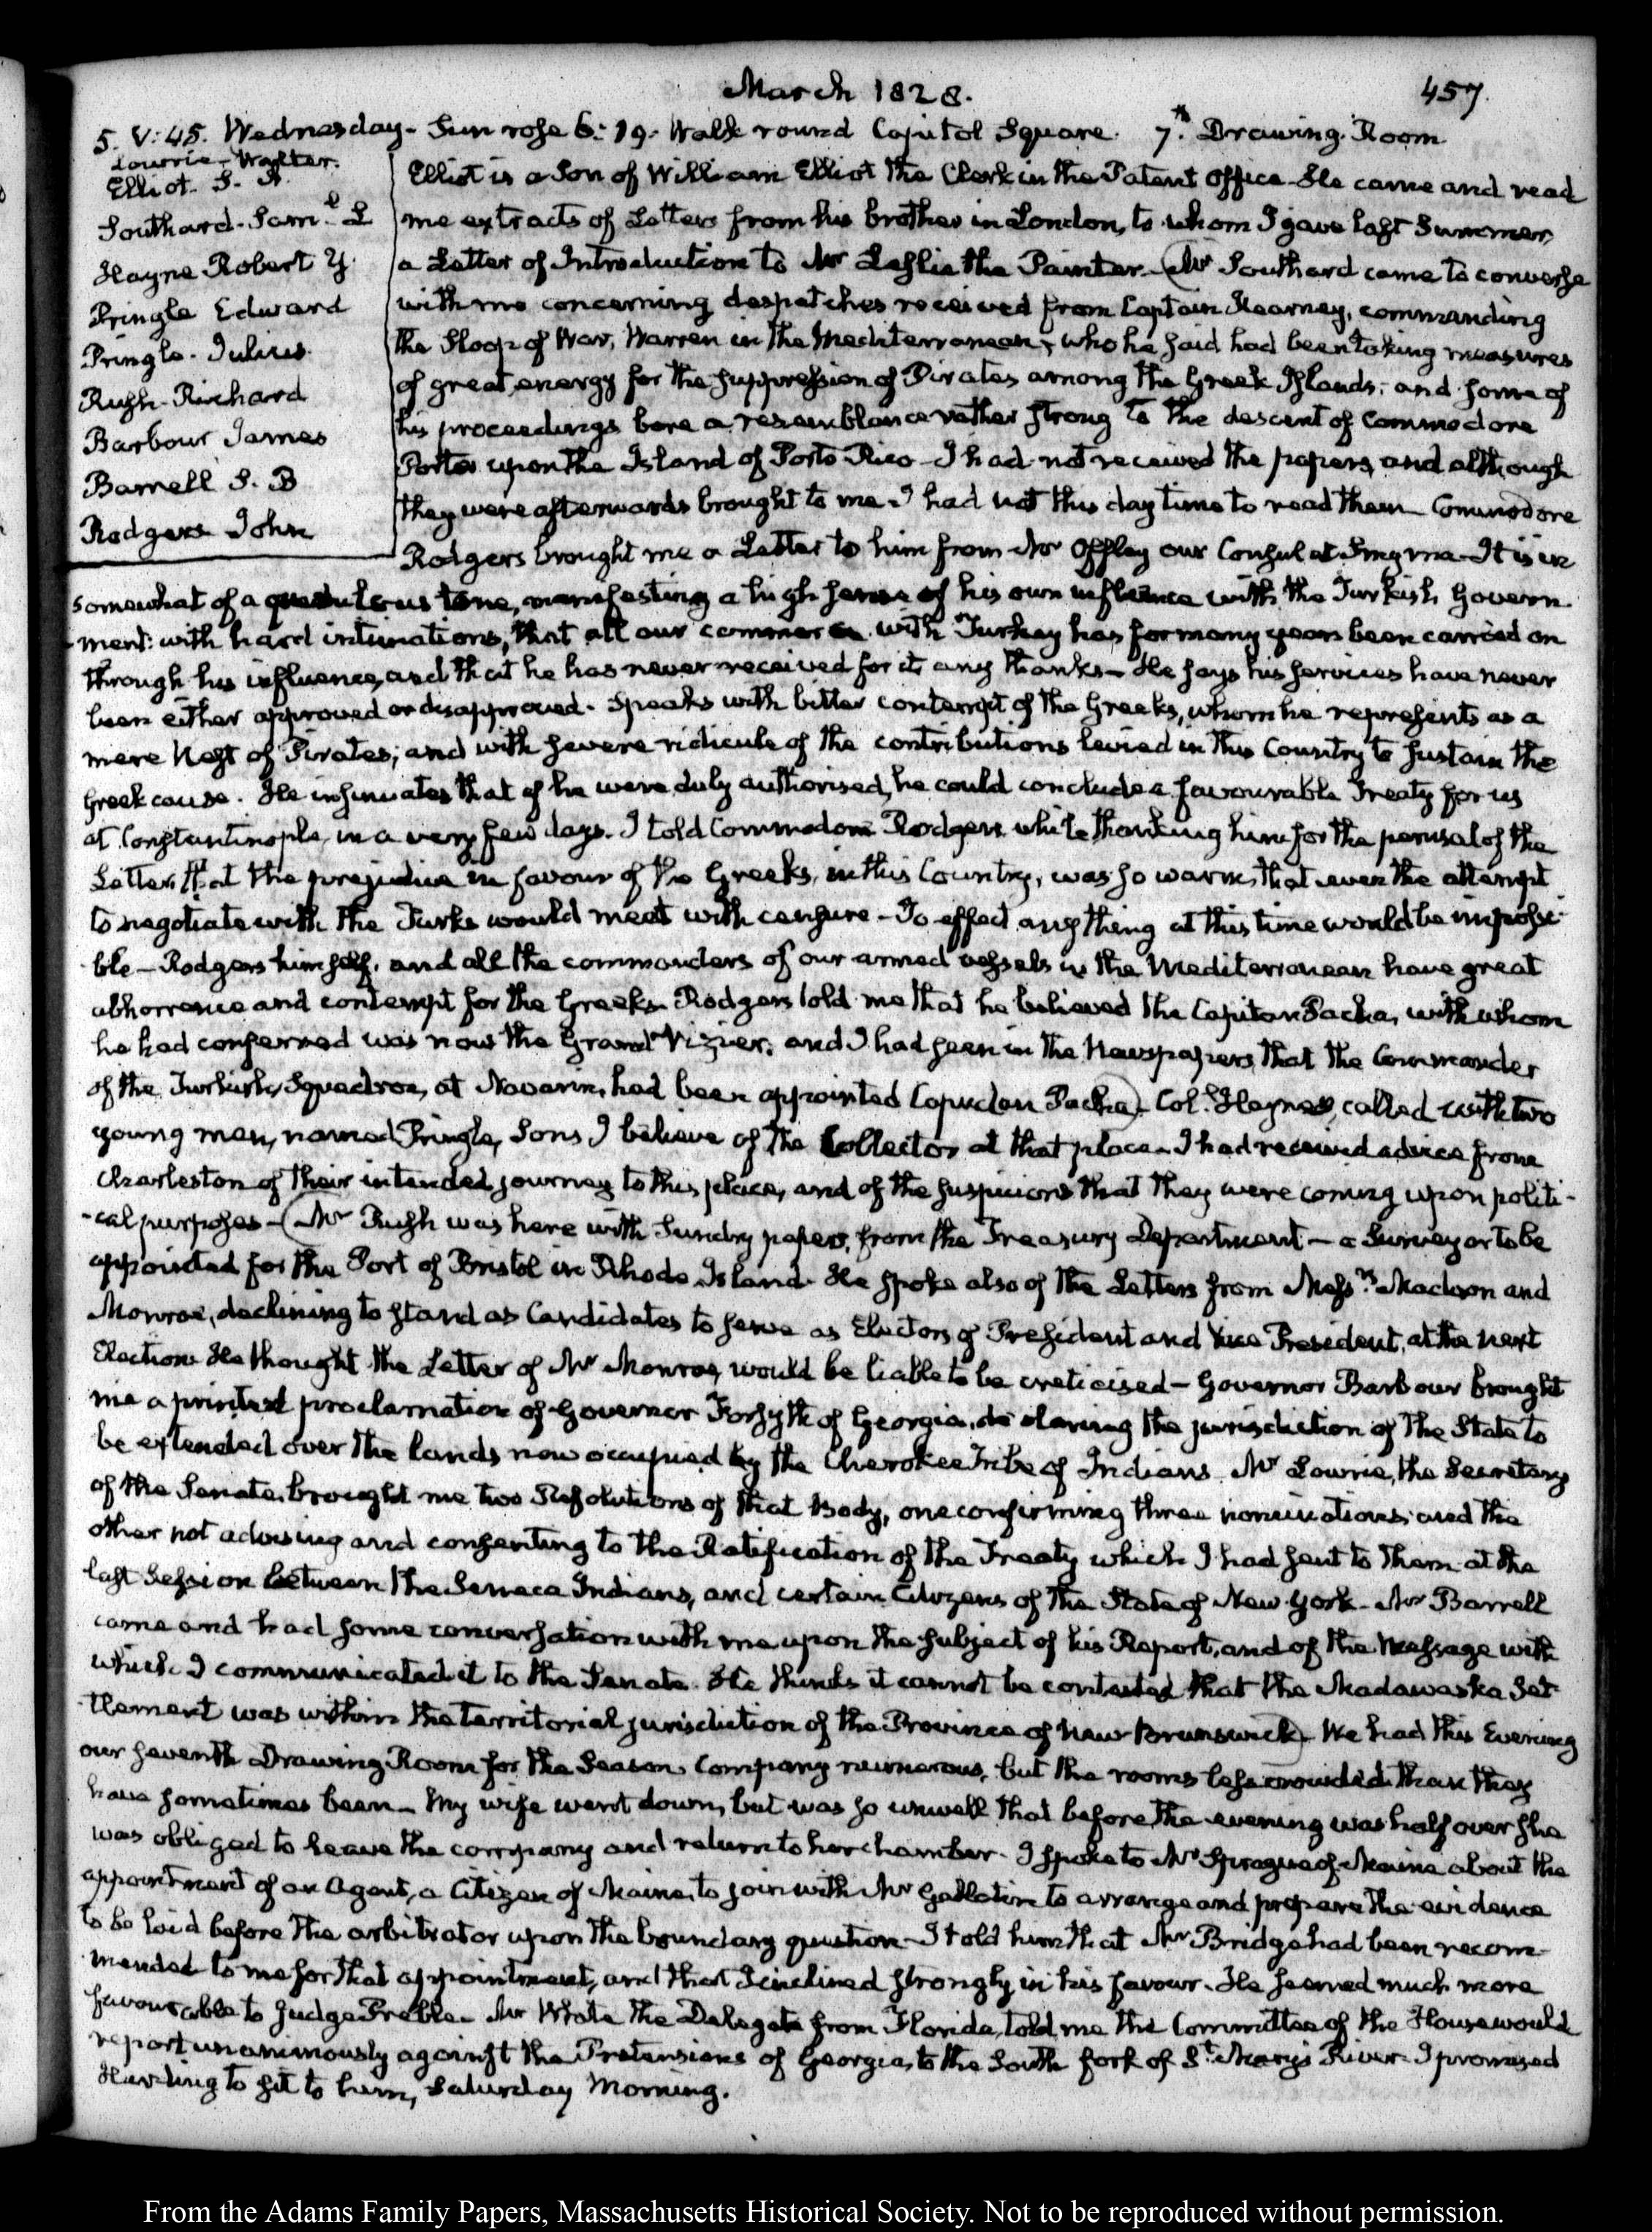 March 1828.
457.
5. V:45. Wednesday. Sun rose 6:19. Walk round Capitol Square. 7th Drawing Room
Lowrie - Walter.
Elliot. S. A
Southard. Saml L
Hayne Robert Y.
Pringle Edward
Pringle. Julius.
Rush. Richard
Barbour James
Barrell S. B
Rodgers John
Elliot is a Son of William Elliot the Clerk in the Patent Office. He came and read
me extracts of Letters from his brother in London, to whom I gave last Summer,
a Letter of Introduction to Mr Leslie the Painter. (Mr Southard came to converse
with me concerning despatches received from Captain Kearney, commanding
the Sloop of War, Warren in the Mediterranean, who he said had been taking measures
of great energy for the suppression of Pirates among the Greek Islands; and some of
his proceedings bore a resemblance rather strong to the descent of Commodore
Porter upon the Island of Porto Rico. I had not received the papers, and although
they were afterwards brought to me. I had not this day time to read them. Commodore
Rodgers brought me a Letter to him from Mr Offley our Consul at Smyrna. It is in
somewhat of a querulous tone, manifesting a high sense of his own influence with the Turkish Govern
-ment: with hard intimations, that all our commerce with Turkey has for many years been carried on
through his influence, and that he has never received for it any thanks. He says his services have never
been either approved or disapproved. Speaks with bitter contempt of the Greeks, whom he represents as a
mere Nest of Pirates; and with severe ridicule of the contributions levied in this Country to sustain the
Greek cause. He insinuates that if he were duly authorised, he could conclude a favourable Treaty for us
at Constantinople, in a very few days. I told Commodore Rodgers while thanking him for the perusal of the
Letter, that the prejudice in favour of the Greeks, in this Country, was so warm, that even the attempt
to negotiate with the Turks would meet with censure - To effect any thing at this time would be impossi-
ble - Rodgers himself, and all the commanders of our armed vessels in the Mediterranean have great
abhorrence and contempt for the Greeks. Rodgers told me that he believed the Capitan Pacha, with whom
he had conferred was now the Grand Vizier; and I had seen in the Newspapers that the Commander
of the Turkish Squadron, at Navarin, had been appointed Capudan Pacha). Col. Hayne, called with two
young men, named Pringle, Sons I believe of the Collector at that place. I had received advice from
Charleston of their intended journey to this place, and of the suspicions that they were coming upon politi-
-cal purposes - (Mr Rush was here with Sundry papers, from the Treasury Department - a Surveyor to be
appointed for the Port of Bristol in Rhode Island. He spoke also of the Letters from Messrs Madison and
Monroe, declining to stand as Candidates to serve as Electors of President and Vice President, at the next
Election. He thought the Letter of Mr Monroe, would be liable to be creticised - Governor Barbour brought
me a printed proclamation of Governor Forsyth of Georgia, declaring the jurisdiction of the State to
be extended over the lands now occupied by the Cherokee Tribe of Indians. Mr Lowrie, the Secretary
of the Senate, brought me two Resolutions of that Body, one confirming three nominations; and the
other not advising and consenting to the Ratification of the Treaty which I had sent to them at the
last Session between the Seneca Indians, and certain Citizens of the State of New York. Mr Barrell
came and had some conversation with me upon the subject of his Report, and of the Message with
which I communicated it to the Senate. He thinks it cannot be contested that the Madawaska Set-
tlement was within the territorial jurisdiction of the Province of New Brunswick). We had this Evening
our seventh Drawing Room for the Season. Company numerous, but the rooms less crowded than they
have sometimes been. My wife went down, but was so unwell that before the evening was half over she
was obliged to leave the company and return to her chamber. I spoke to Mr Sprague of Maine about the
appointment of an Agent, a Citizen of Maine, to join with Mr Gallatin to arrange and prepare the evidence
to be laid before the arbitrator upon the boundary question. I told him that Mr Bridge had been recom-
mended to me for that appointment, and that I inclined strongly in his favour. He seemed much more
favourable to Judge Preble. Mr White the Delegate from Florida, told me the Committee of the House would
report unanimously against the Pretensions of Georgia, to the South fork of St. Mary's River. I promised
Harding to sit to him, Saturday Morning.
From the Adams Family Papers, Massachusetts Historical Society. Not to be reproduced without permission.